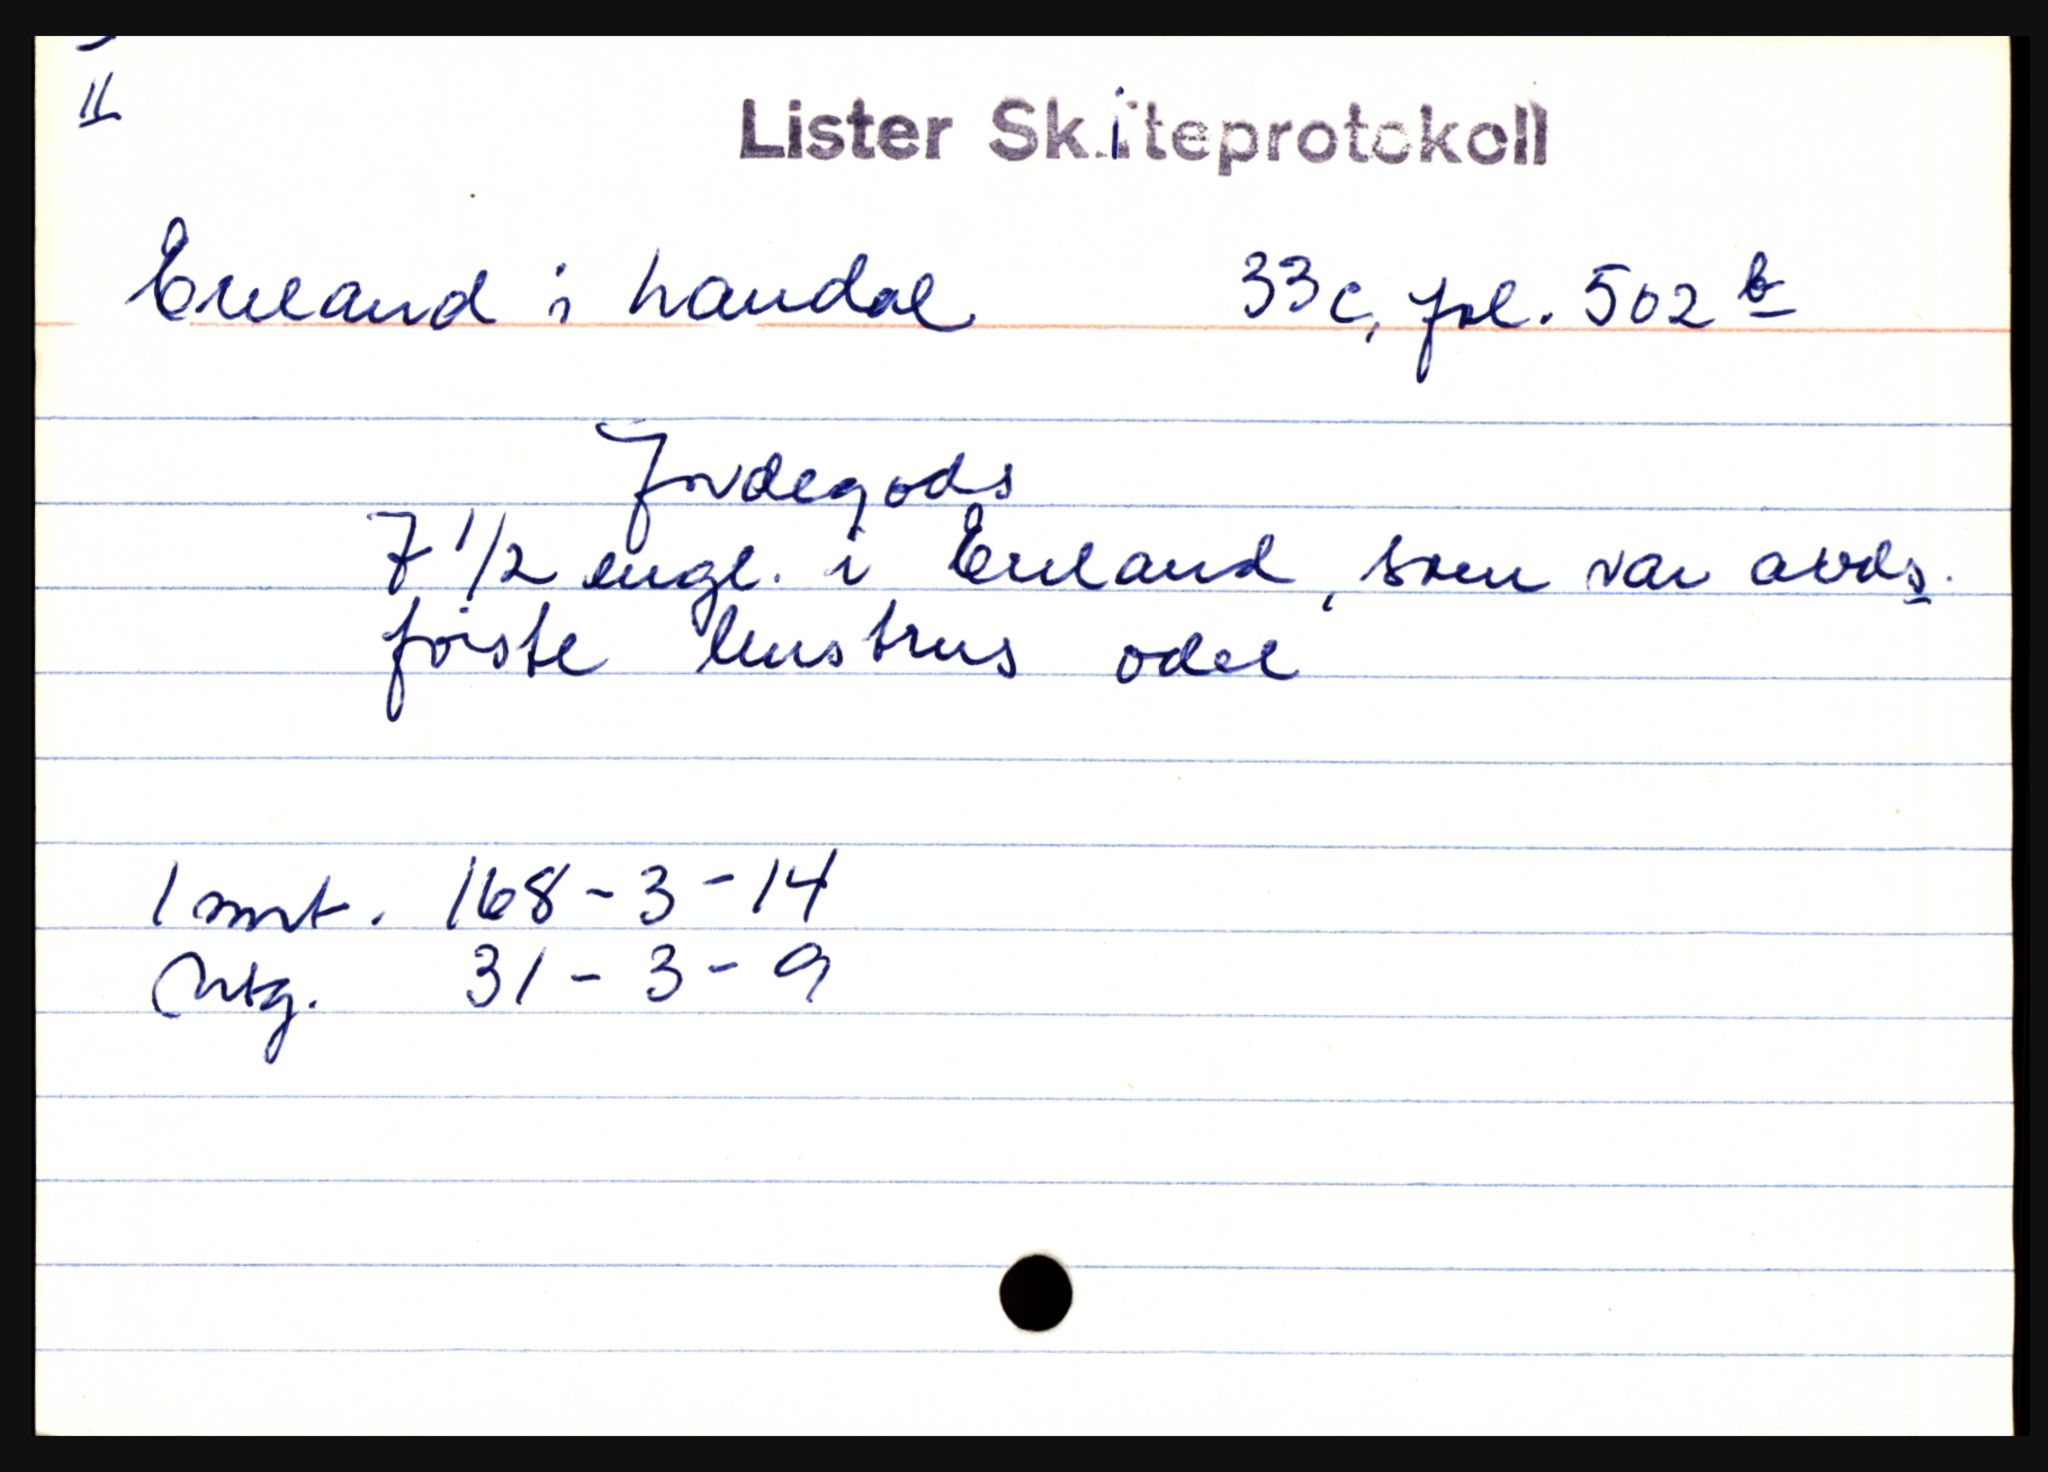 II
Lister Skifteprotokoll
Ereland i Landal 33c, fol. 502 b
Jordegods
7 1/2 engl. i Ereland, som var avds.
første hustrus odel
1 mst. 168 - 3 - 14
Ntg. 31 - 3 - 9